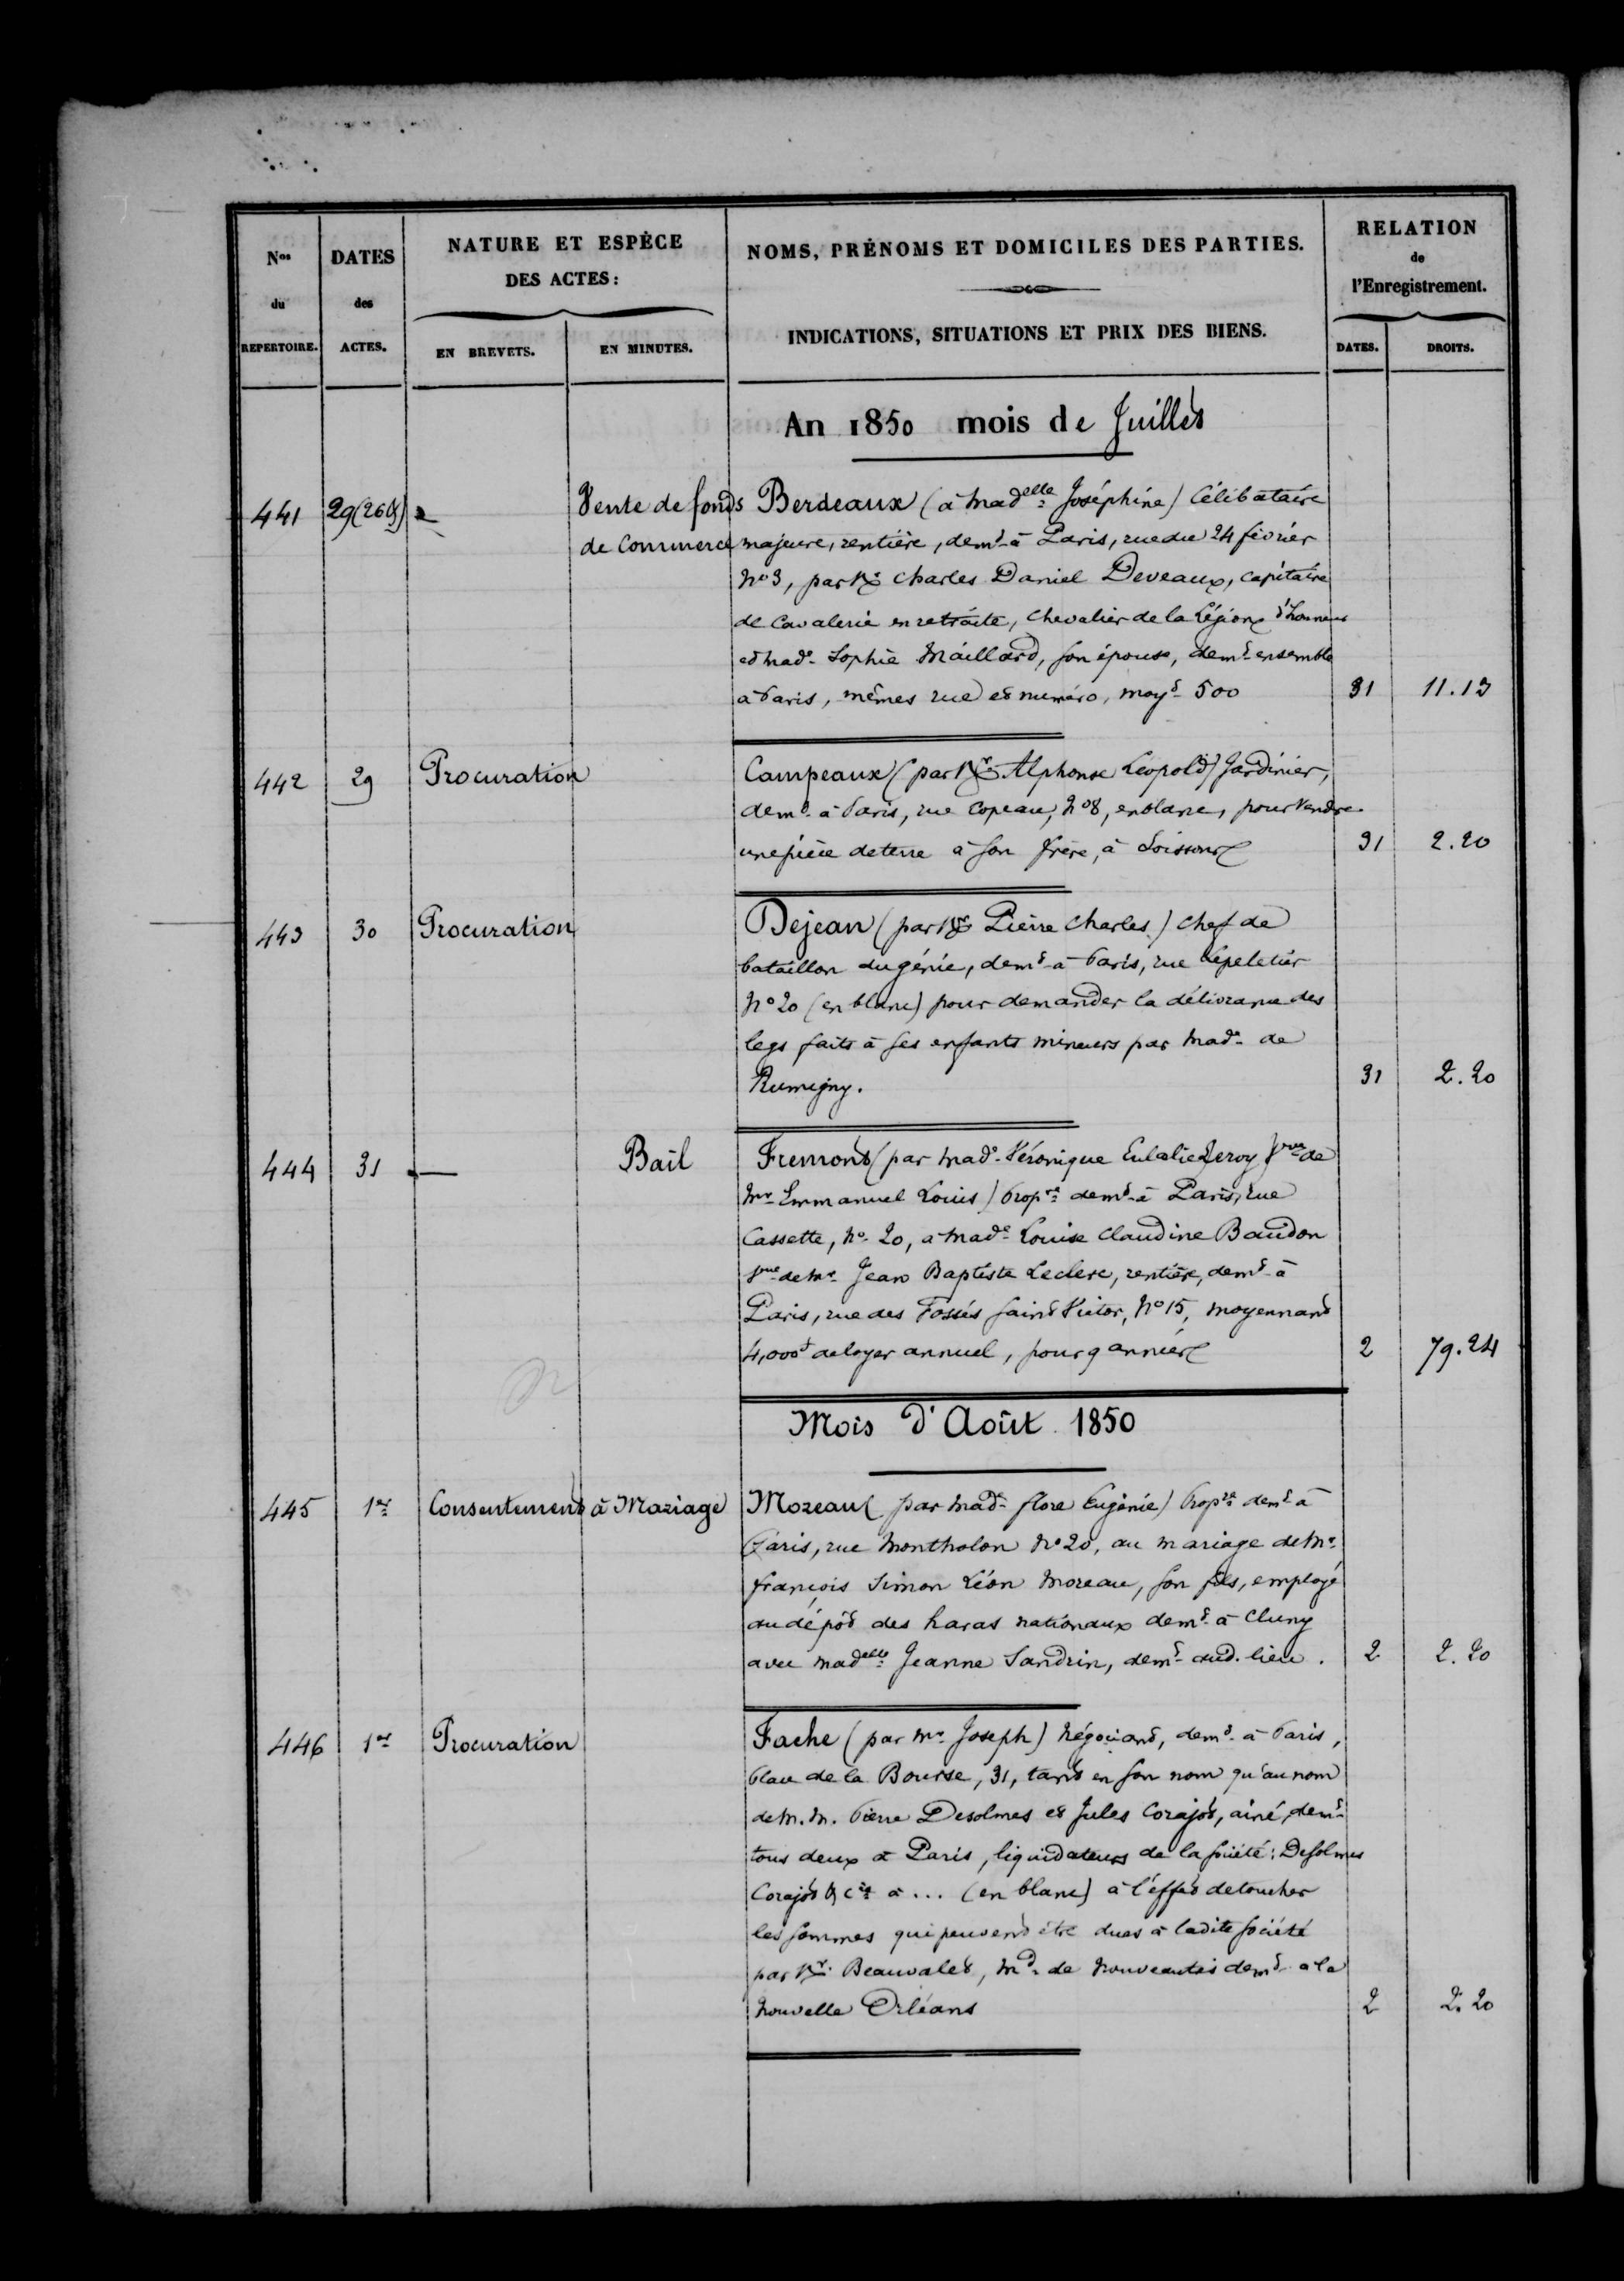 Nos du REPERTOIRE.
DATES des ACTES.
NATURE ET ESPÈCE DES ACTES:
EN BREVETS.
EN MINUTES.
NOMS, PRÉNOMS ET DOMICILES DES PARTIES.
INDICATIONS, SITUATIONS ET PRIX DES BIENS.
RELATION de l'Enregistrement.
DATES.
DROITS.
An 1850 mois de Juillet
441 29 (26 &) Vente de fonds Berdeaux (à Madelle Joséphine) Célibataire
de Commerce majeure, rentière, demt à Paris, rue du 24 février
No 3, par Mr Charles Daniel Deveaux, capitaine
de Cavalerie en retraite, Chevalier de la Légion d'honneur
et Made Sophie Maillard, son épouse, demt ensemble
à Paris, mêmes rue et numéro, moyt 500 31 11.13
442 29 Procuration Campeaux (par Mr Alphonse Léopold) Jardinier,
demt à Paris, rue Copeau, No 8, en blanc, pour vendre
une pièce de terre à son frère, à Soissons 31 2.20
443 30 Procuration Dejean (par Mr Pierre Charles) chef de
bataillon du génie, demt à Paris, rue Lepeletier
No 20 (en blanc) pour demander la délivrance des
legs faits à ses enfants mineurs par Made de
Rumigny. 31 2.20
444 31 — Bail Fremont (par Made Véronique Eulalie Leroy Vve de
Mr Emmanuel Louis) Propre demt à Paris, rue
Cassette, No 20, à Made Louise Claudine Baudon
Vve de Mr Jean Baptiste Leclerc, rentière, demt à
Paris, rue des Fossés Saint Victor, No 15, moyennant
4,000f de loyer annuel, pour 9 années 2 79.24
Mois d'Août 1850
445 1er Consentement à Mariage Moreau (par Made flore Eugénie) Propre demt à
Paris, rue Montholon No 20, au mariage de Mr
françois Simon Léon Moreau, son fils, employé
au dépôt des haras nationaux demt à Cluny
avec Madelle Jeanne Sandrin, demt aud. lieu. 2 2.20
446 1er Procuration Fache (par Mr Joseph) Négociant, demt à Paris,
Place de la Bourse, 31, tant en son nom qu'au nom
de M.M. Pierre Desolmes et Jules Corajot, aîné, demt
tous deux à Paris, liquidateurs de la société: Desolmes
Corajot & Cie à ... (en blanc) à l'effet de toucher
les sommes qui peuvent être dues à ladite société
par Mr Beauvalet, Md de Nouveautés demt à la
Nouvelle Orléans 2 2.20